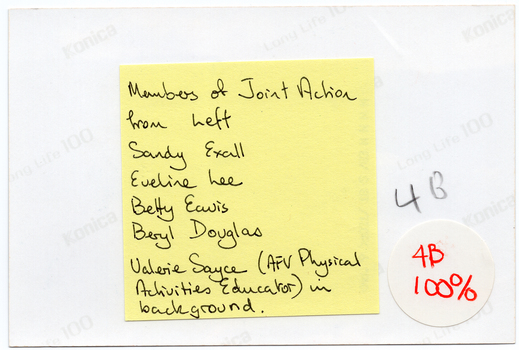 Members of Joint Action
from Left
Sandy Exall
Eveline Lee
Betty Eavis
Beryl Douglas
Valerie Sayce (AFV Physical
Activities Educator) in
background.
4B
4B
100%
Konica
Long Life 100
Konica
Long Life 100
Konica
Long Life 100
Konica
Konica